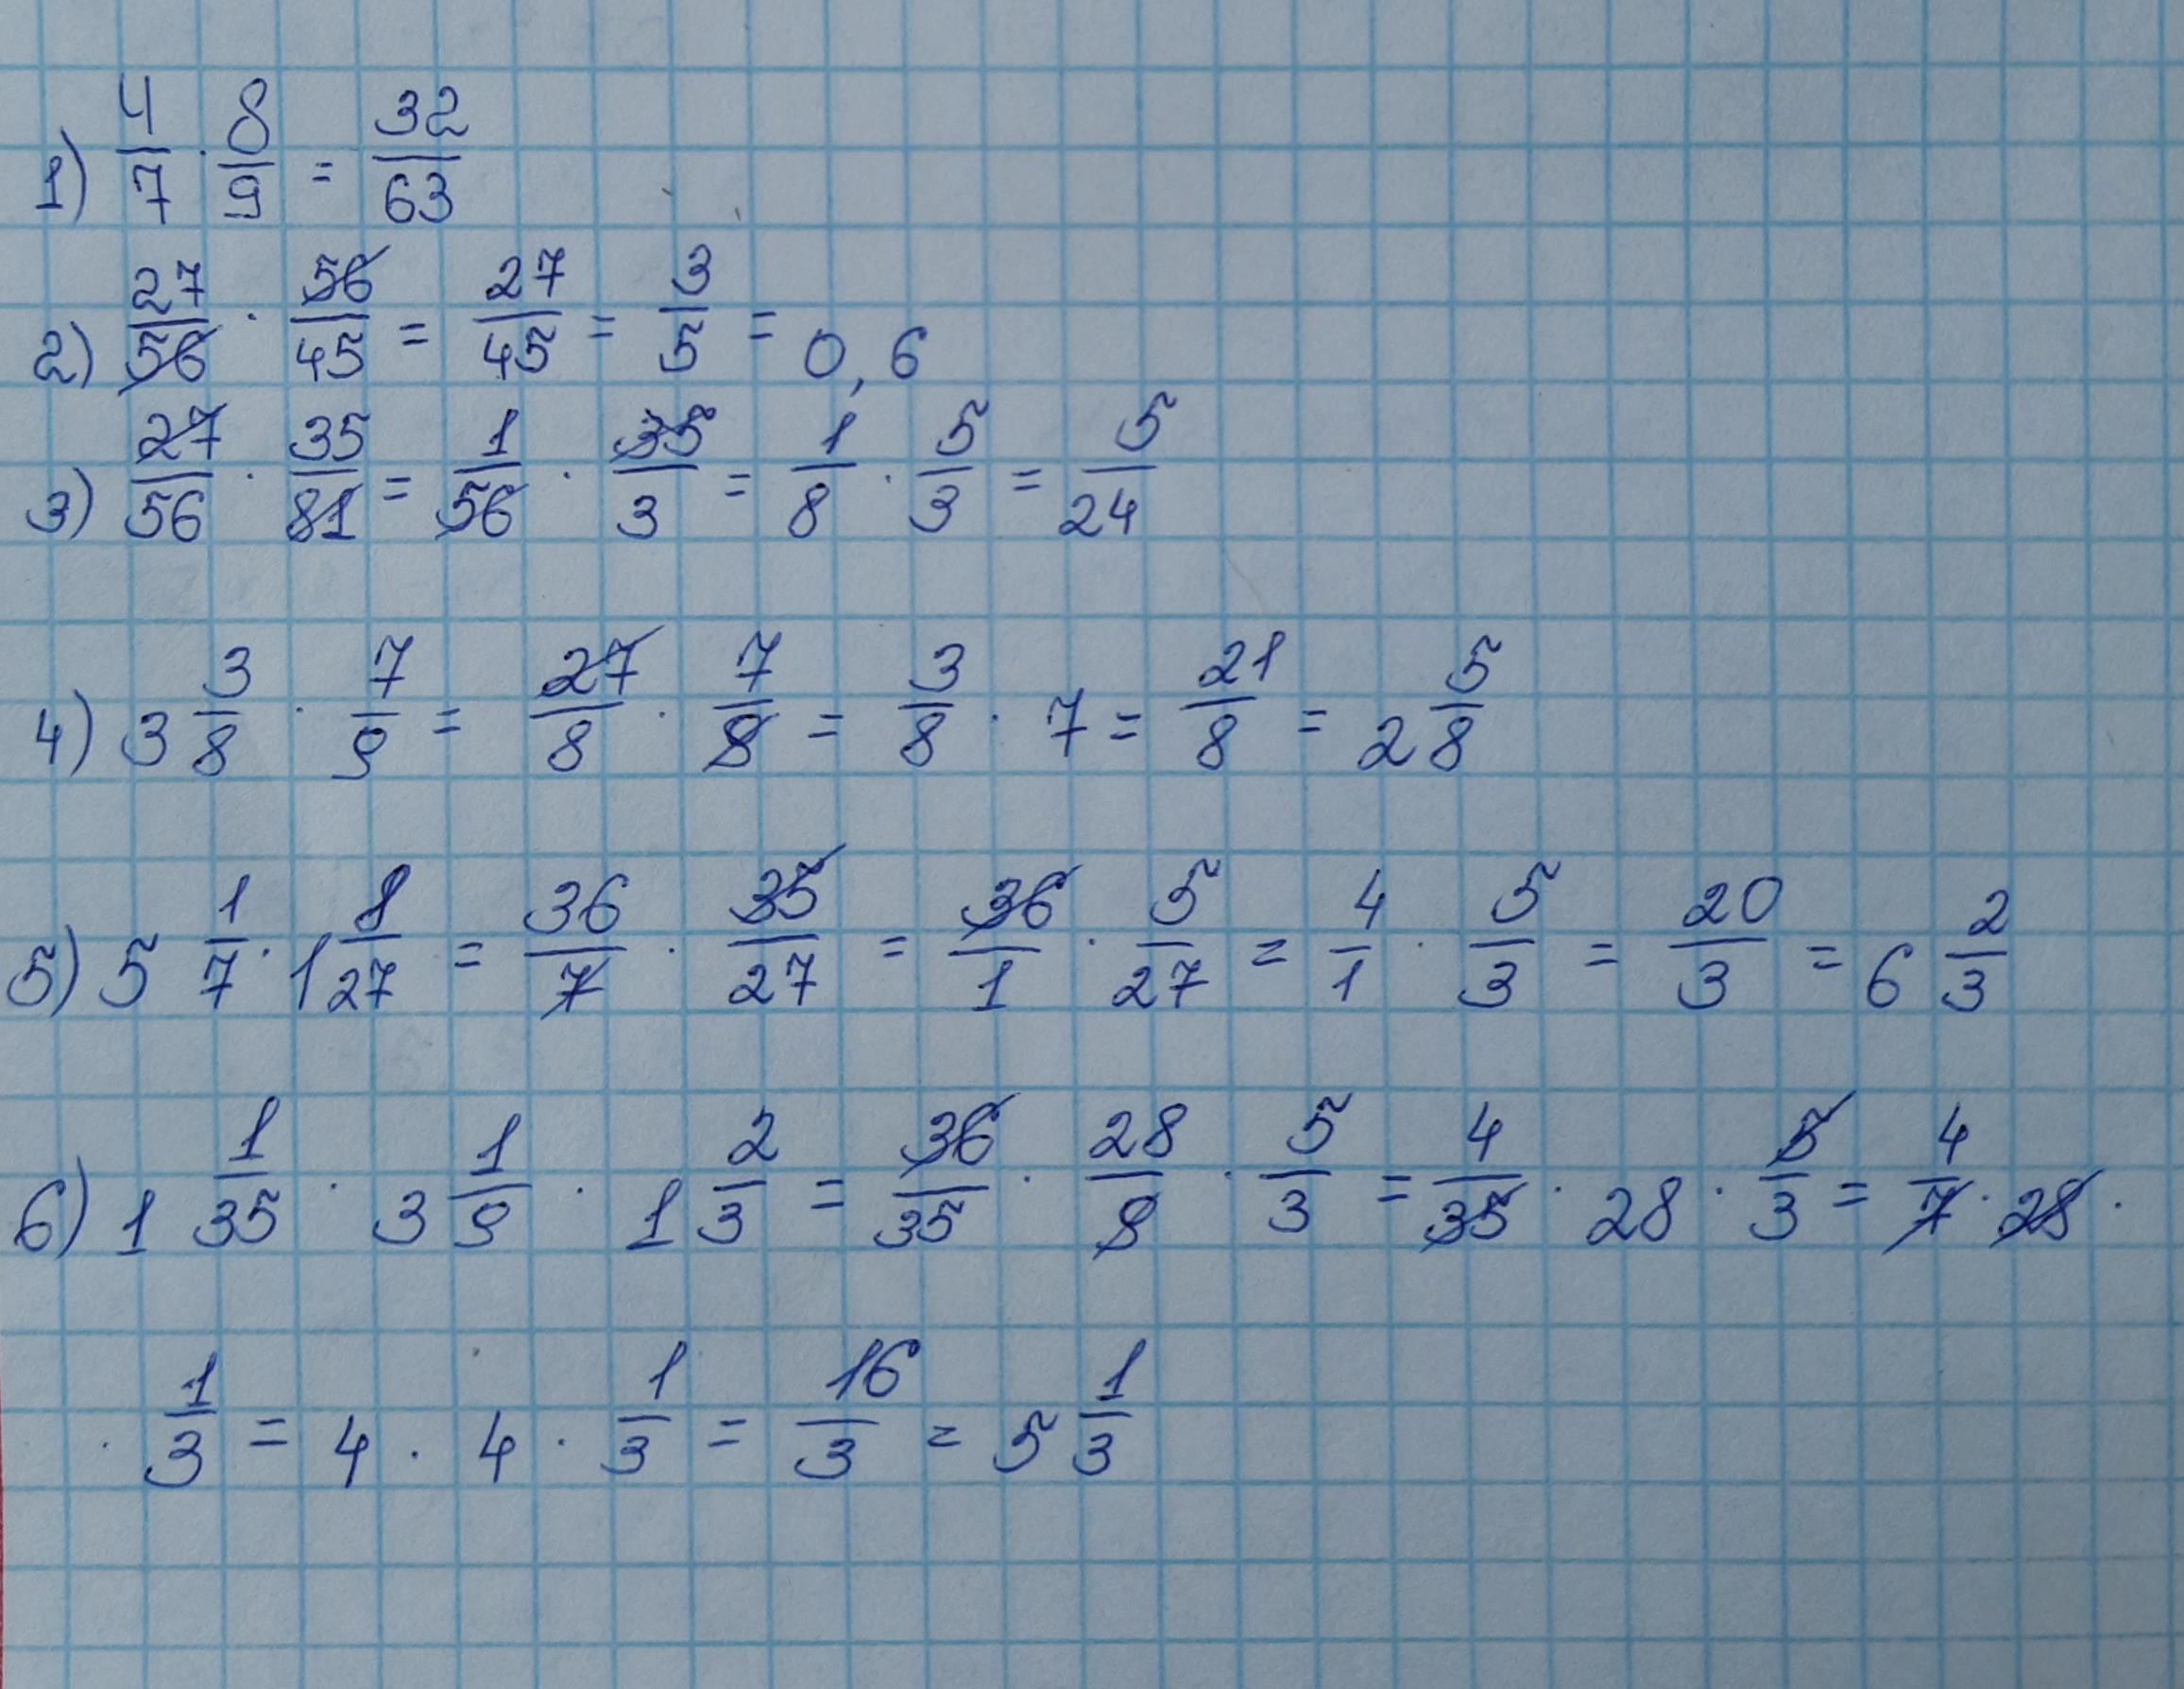 1) 4/7 · 8/9 = 32/63
2) 27/56 · 56/45 = 27/45 = 3/5 = 0,6
3) 27/56 · 35/81 = 1/56 · 35/3 = 1/8 · 5/3 = 5/24
4) 3 3/8 · 7/9 = 27/8 · 7/9 = 3/8 · 7 = 21/8 = 2 5/8
5) 5 1/7 · 1 8/27 = 36/7 · 35/27 = 36/1 · 5/27 = 4/1 · 5/3 = 20/3 = 6 2/3
6) 1 1/35 · 3 1/9 · 1 2/3 = 36/35 · 28/9 · 5/3 = 4/35 · 28 · 5/3 = 4/7 · 28 ·
· 1/3 = 4 · 4 · 1/3 = 16/3 = 5 1/3